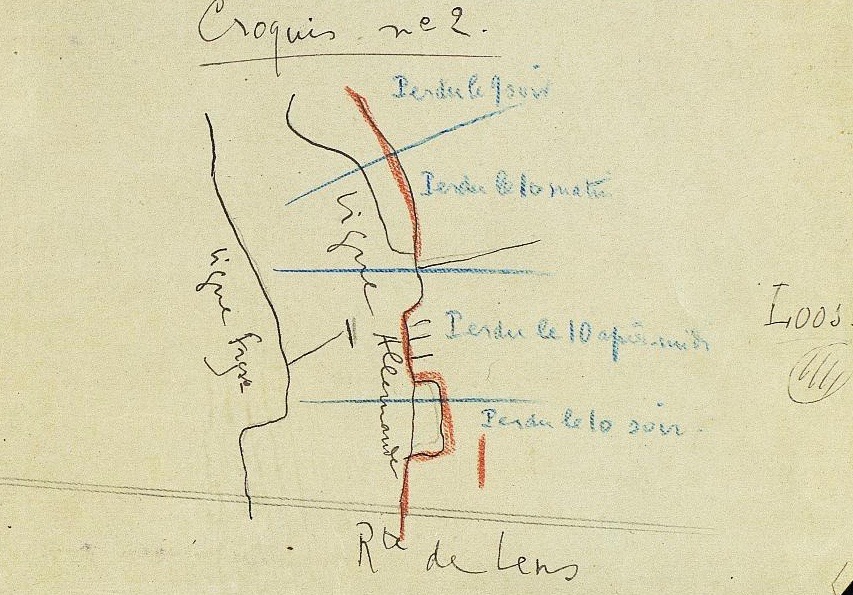 Croquis n° 2.
Perdu le 9 soir
Perdu le 10 matin
Ligne Allemande
Ligne frçse
Perdu le 10 après-midi
Loos.
Perdu le 10 soir
Rte de Lens